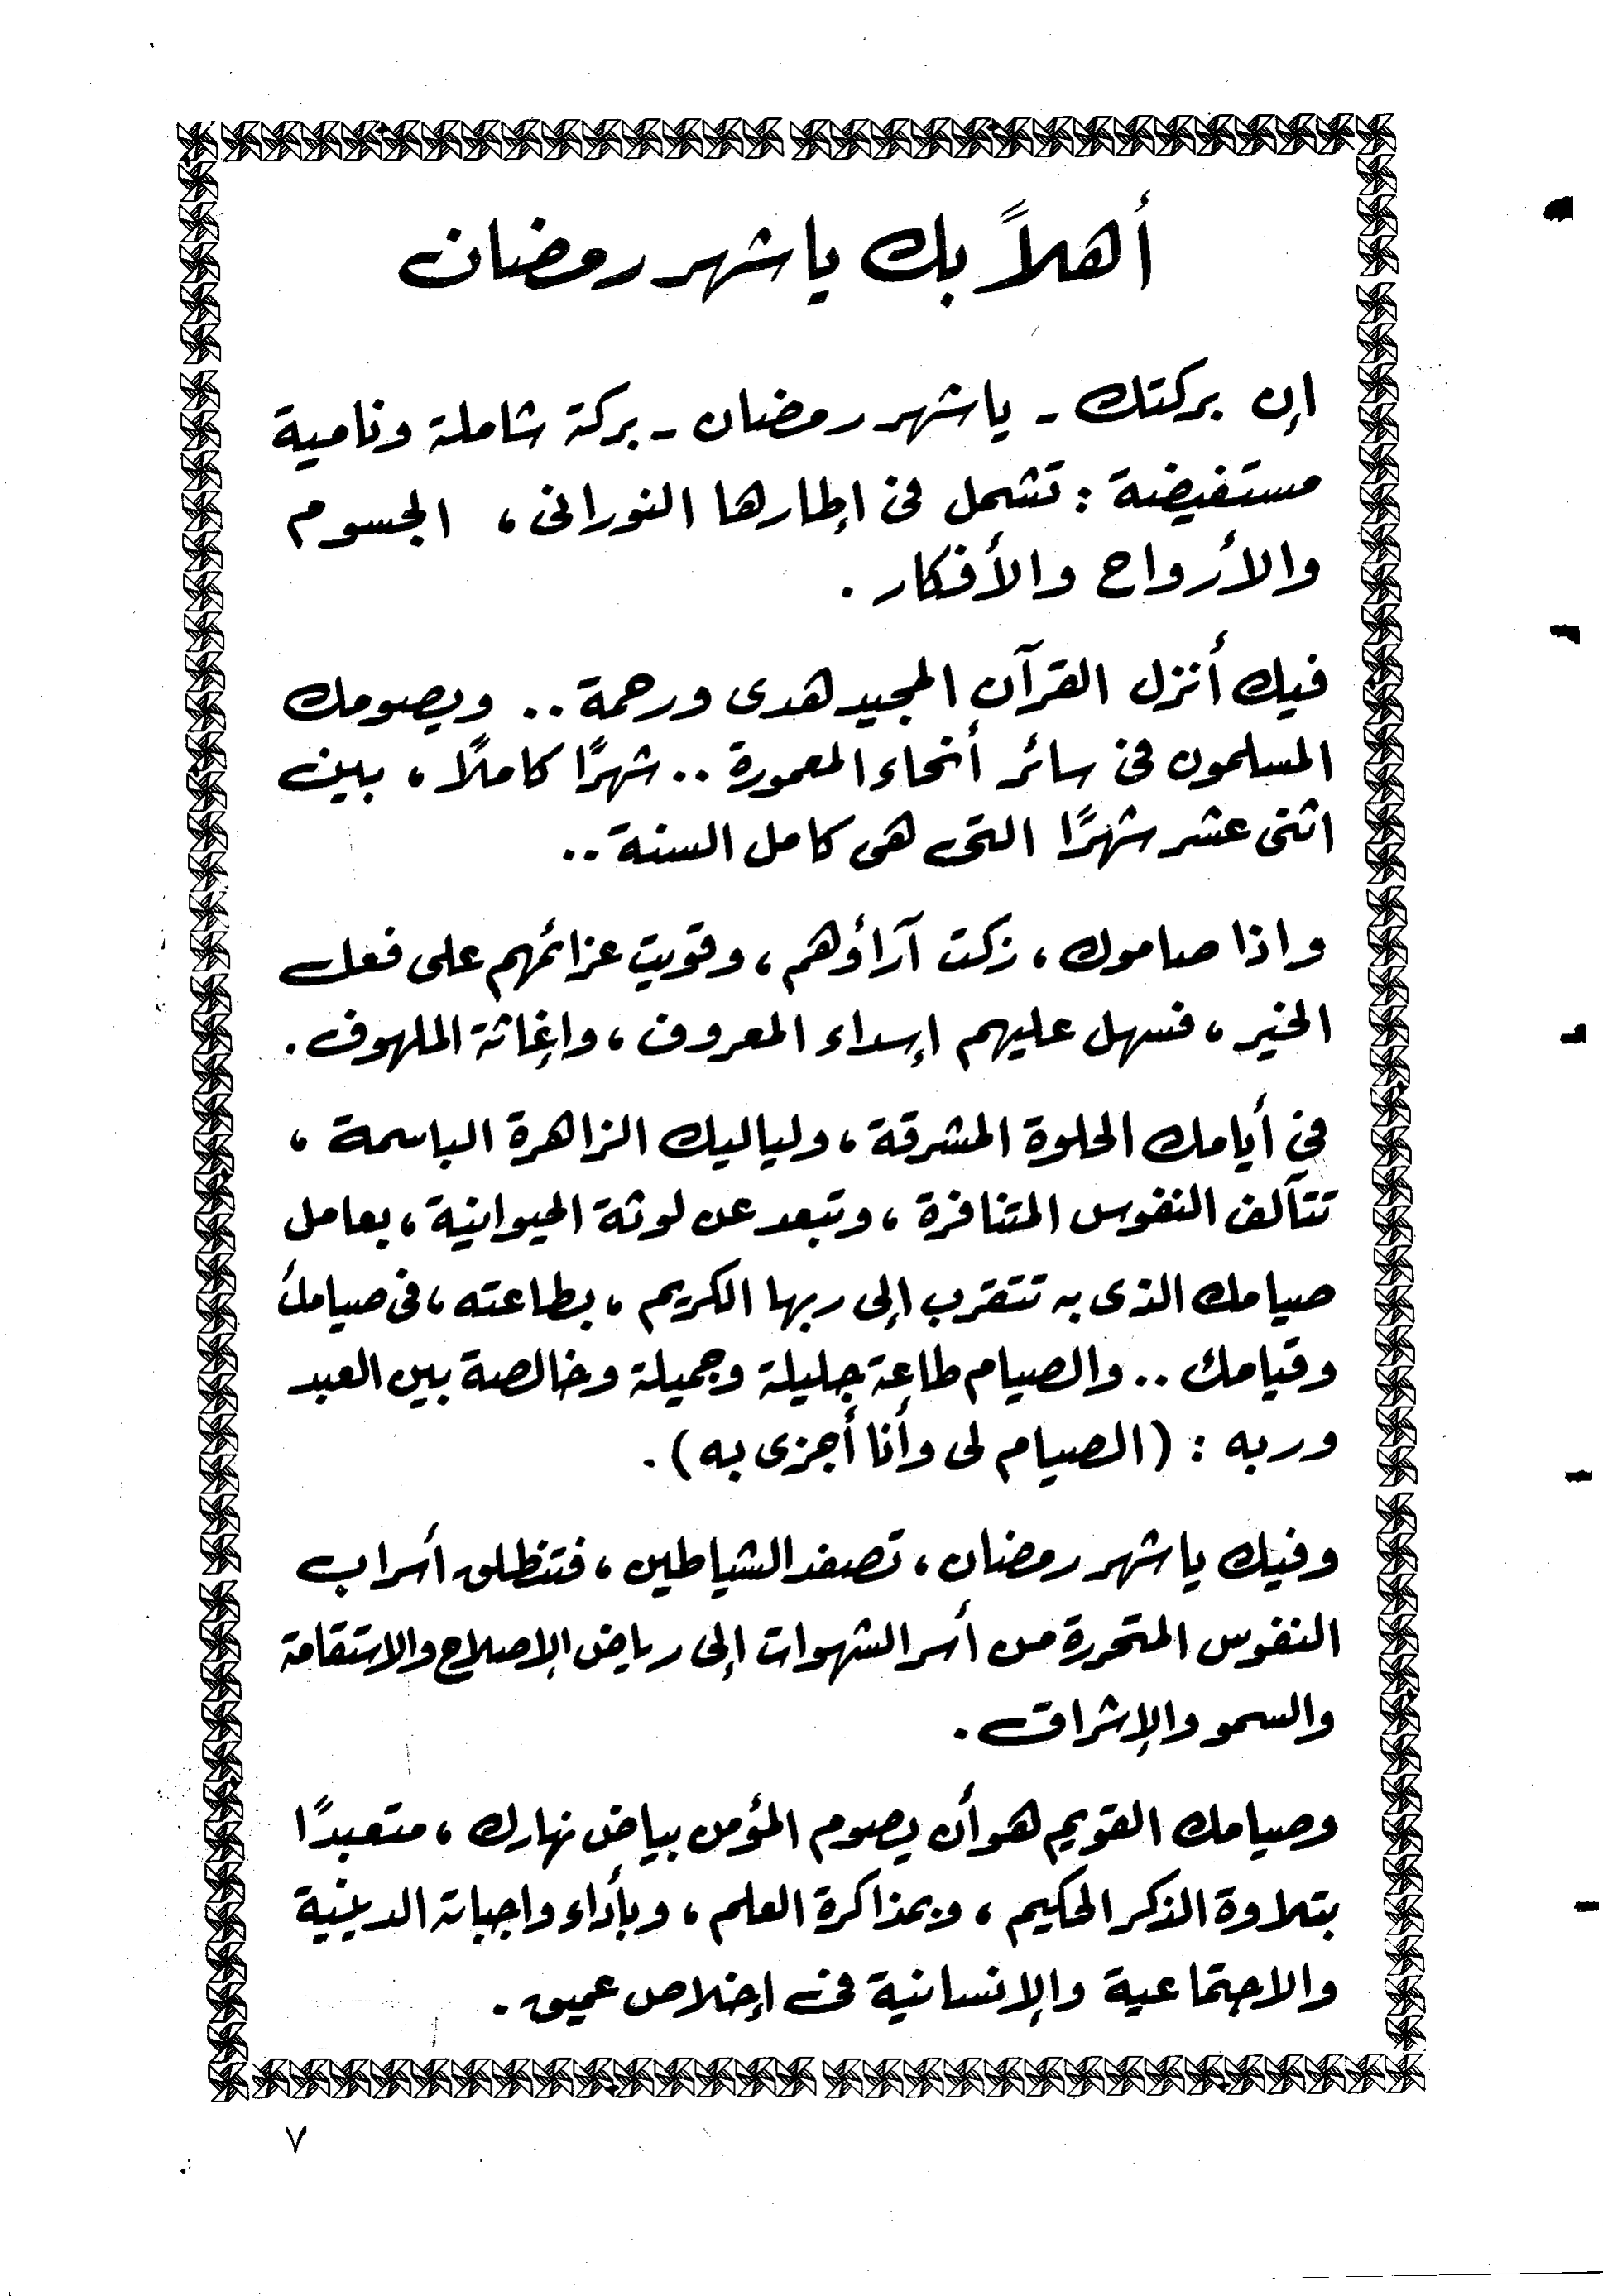 أهلاً بك يا شهر رمضان
إن بركتك - يا شهر رمضان - بركة شاملة ونامية
مستفيضة : تشمل فى إطارها النورانى ، الجسوم
والأرواح والأفكار .
فيك أنزل القرآن المجيد هدى ورحمة .. ويصومك
المسلمون فى سائر أنحاء المعمورة .. شهرًا كاملًا ، بين
اثنى عشر شهرًا التى هى كامل السنة ..
واذا صاموك ، زكت آراؤهم ، وقويت عزائمهم على فعل
الخير ، فسهل عليهم إسداء المعروف ، وإغاثة الملهوف .
في أيامك الحلوة المشرقة ، ولياليك الزاهرة الباسمة ،
تتآلف النفوس المتنافرة ، وتبعد عن لوثة الحيوانية ، بعامل
صيامك الذى به تتقرب إلى ربها الكريم ، بطاعته ، فى صيامك
وقيامك .. والصيام طاعة جليلة وجميلة وخالصة بين العبد
وربه : (الصيام لى وأنا أجزى به) .
وفيك يا شهر رمضان ، تصفد الشياطين ، فتنطلق أسراب
النفوس المتحررة من أسر الشهوات إلى رياض الإصلاح والاستقامة
والسمو والإشراق .
وصيامك القويم هو أن يصوم المؤمن بياض نهارك ، متعبدًا
بتلاوة الذكر الحكيم ، وبمذاكرة العلم ، وبأداء واجباته الدينية
والاجتماعية والإنسانية فى إخلاص عميق .
٧